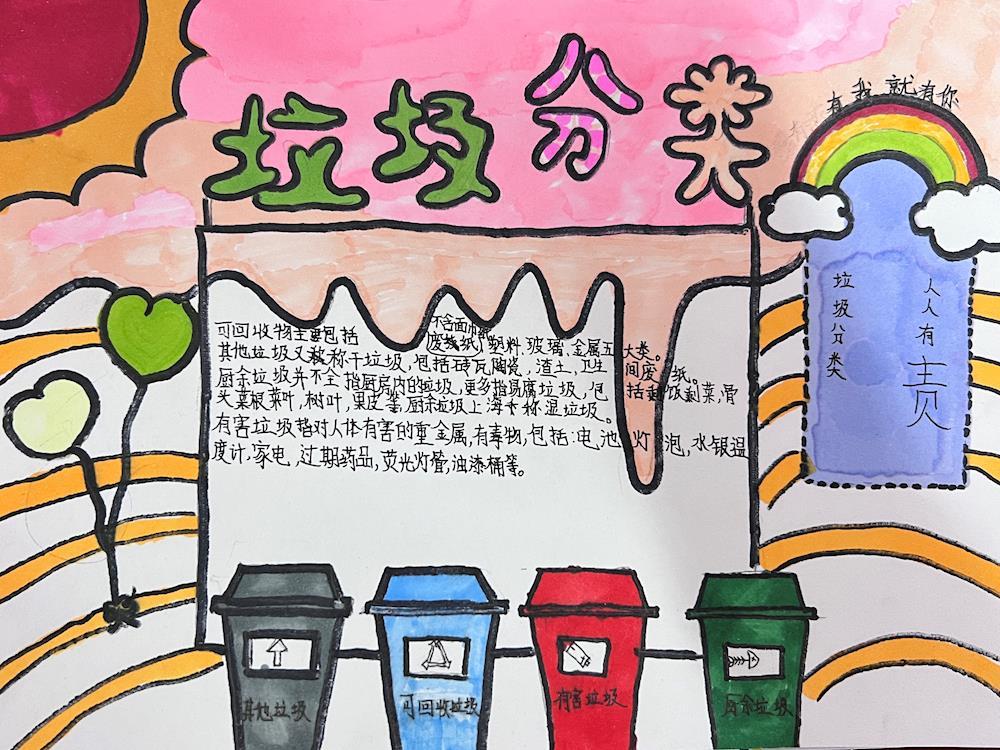 垃圾分类
有我就有你
人人有责
垃圾分类
不含面巾纸
可回收物主要包括废纸,塑料,玻璃,金属五大类。
其他垃圾又被称干垃圾,包括砖瓦陶瓷,渣土,卫生间废纸。
厨余垃圾并不全指厨房内的垃圾,更多指易腐垃圾,包括剩饭剩菜,骨
头菜根菜叶,树叶,果皮等,厨余垃圾上海卡称湿垃圾。
有害垃圾指对人体有害的重金属,有毒物,包括:电池,灯泡,水银温
度计,家电,过期药品,荧光灯管,油漆桶等。
其他垃圾
可回收垃圾
有害垃圾
厨余垃圾